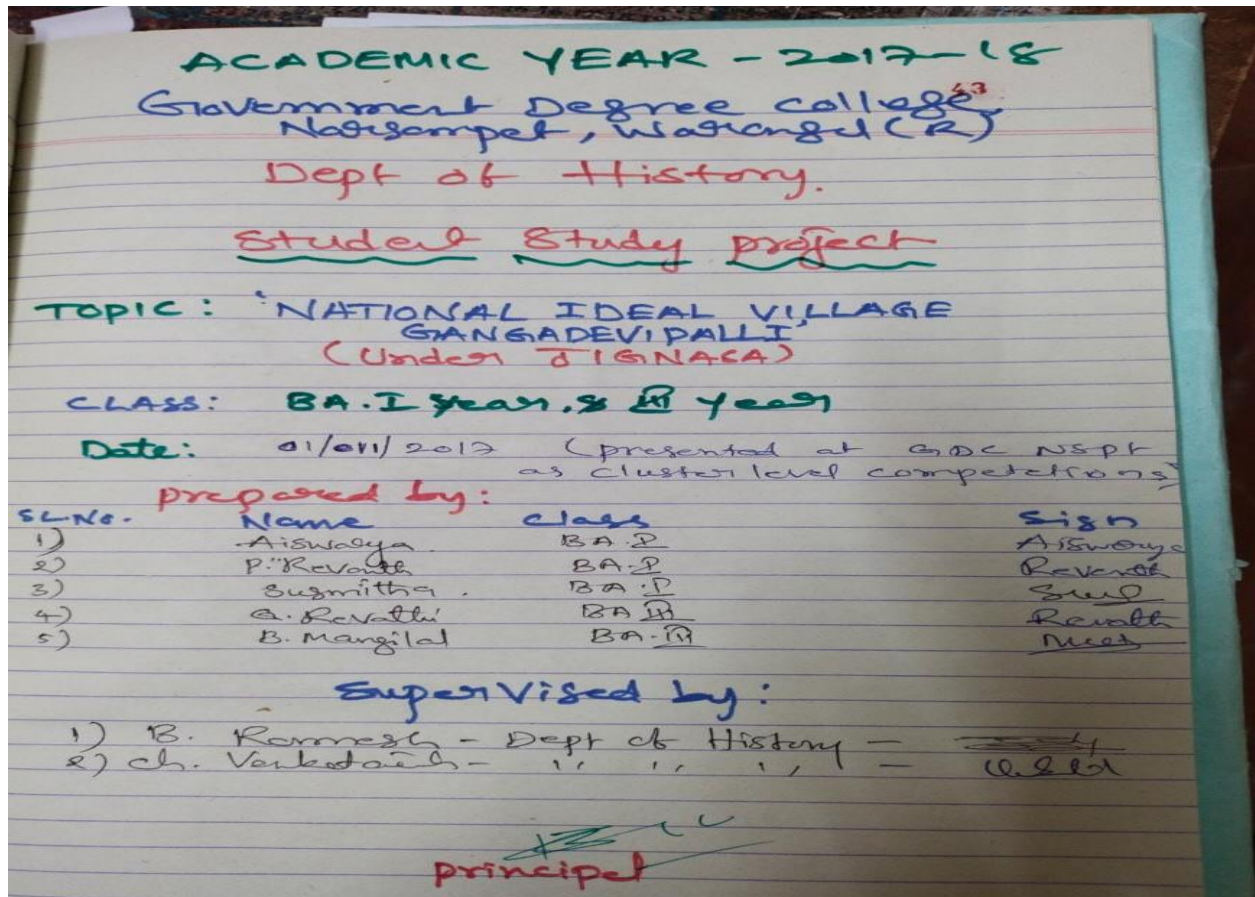 ACADEMIC YEAR - 2017-18
43
Government Degree college,
Narsampet, Warangal (R)
Dept of History.
Student Study project
TOPIC: 'NATIONAL IDEAL VILLAGE
GANGADEVIPALLI'
(Under JIGNASA)
CLASS: BA.I year, & III year
Date: (presented at GDC NSPT
as cluster level competetions)
prepared by:
SL.No. Name Class Sign
1) Aiswarya BA.I Aiswarya
2) P. Revanth BA.I Revanth
3) Susmitha. BA.I
4) G. Revathi BA III Revath
5) B. Mangilal BA.III
Supervised by:
1) B. Ramesh - Dept of History -
2) Ch. Venkataiah - ,, ,, ,, -
principal